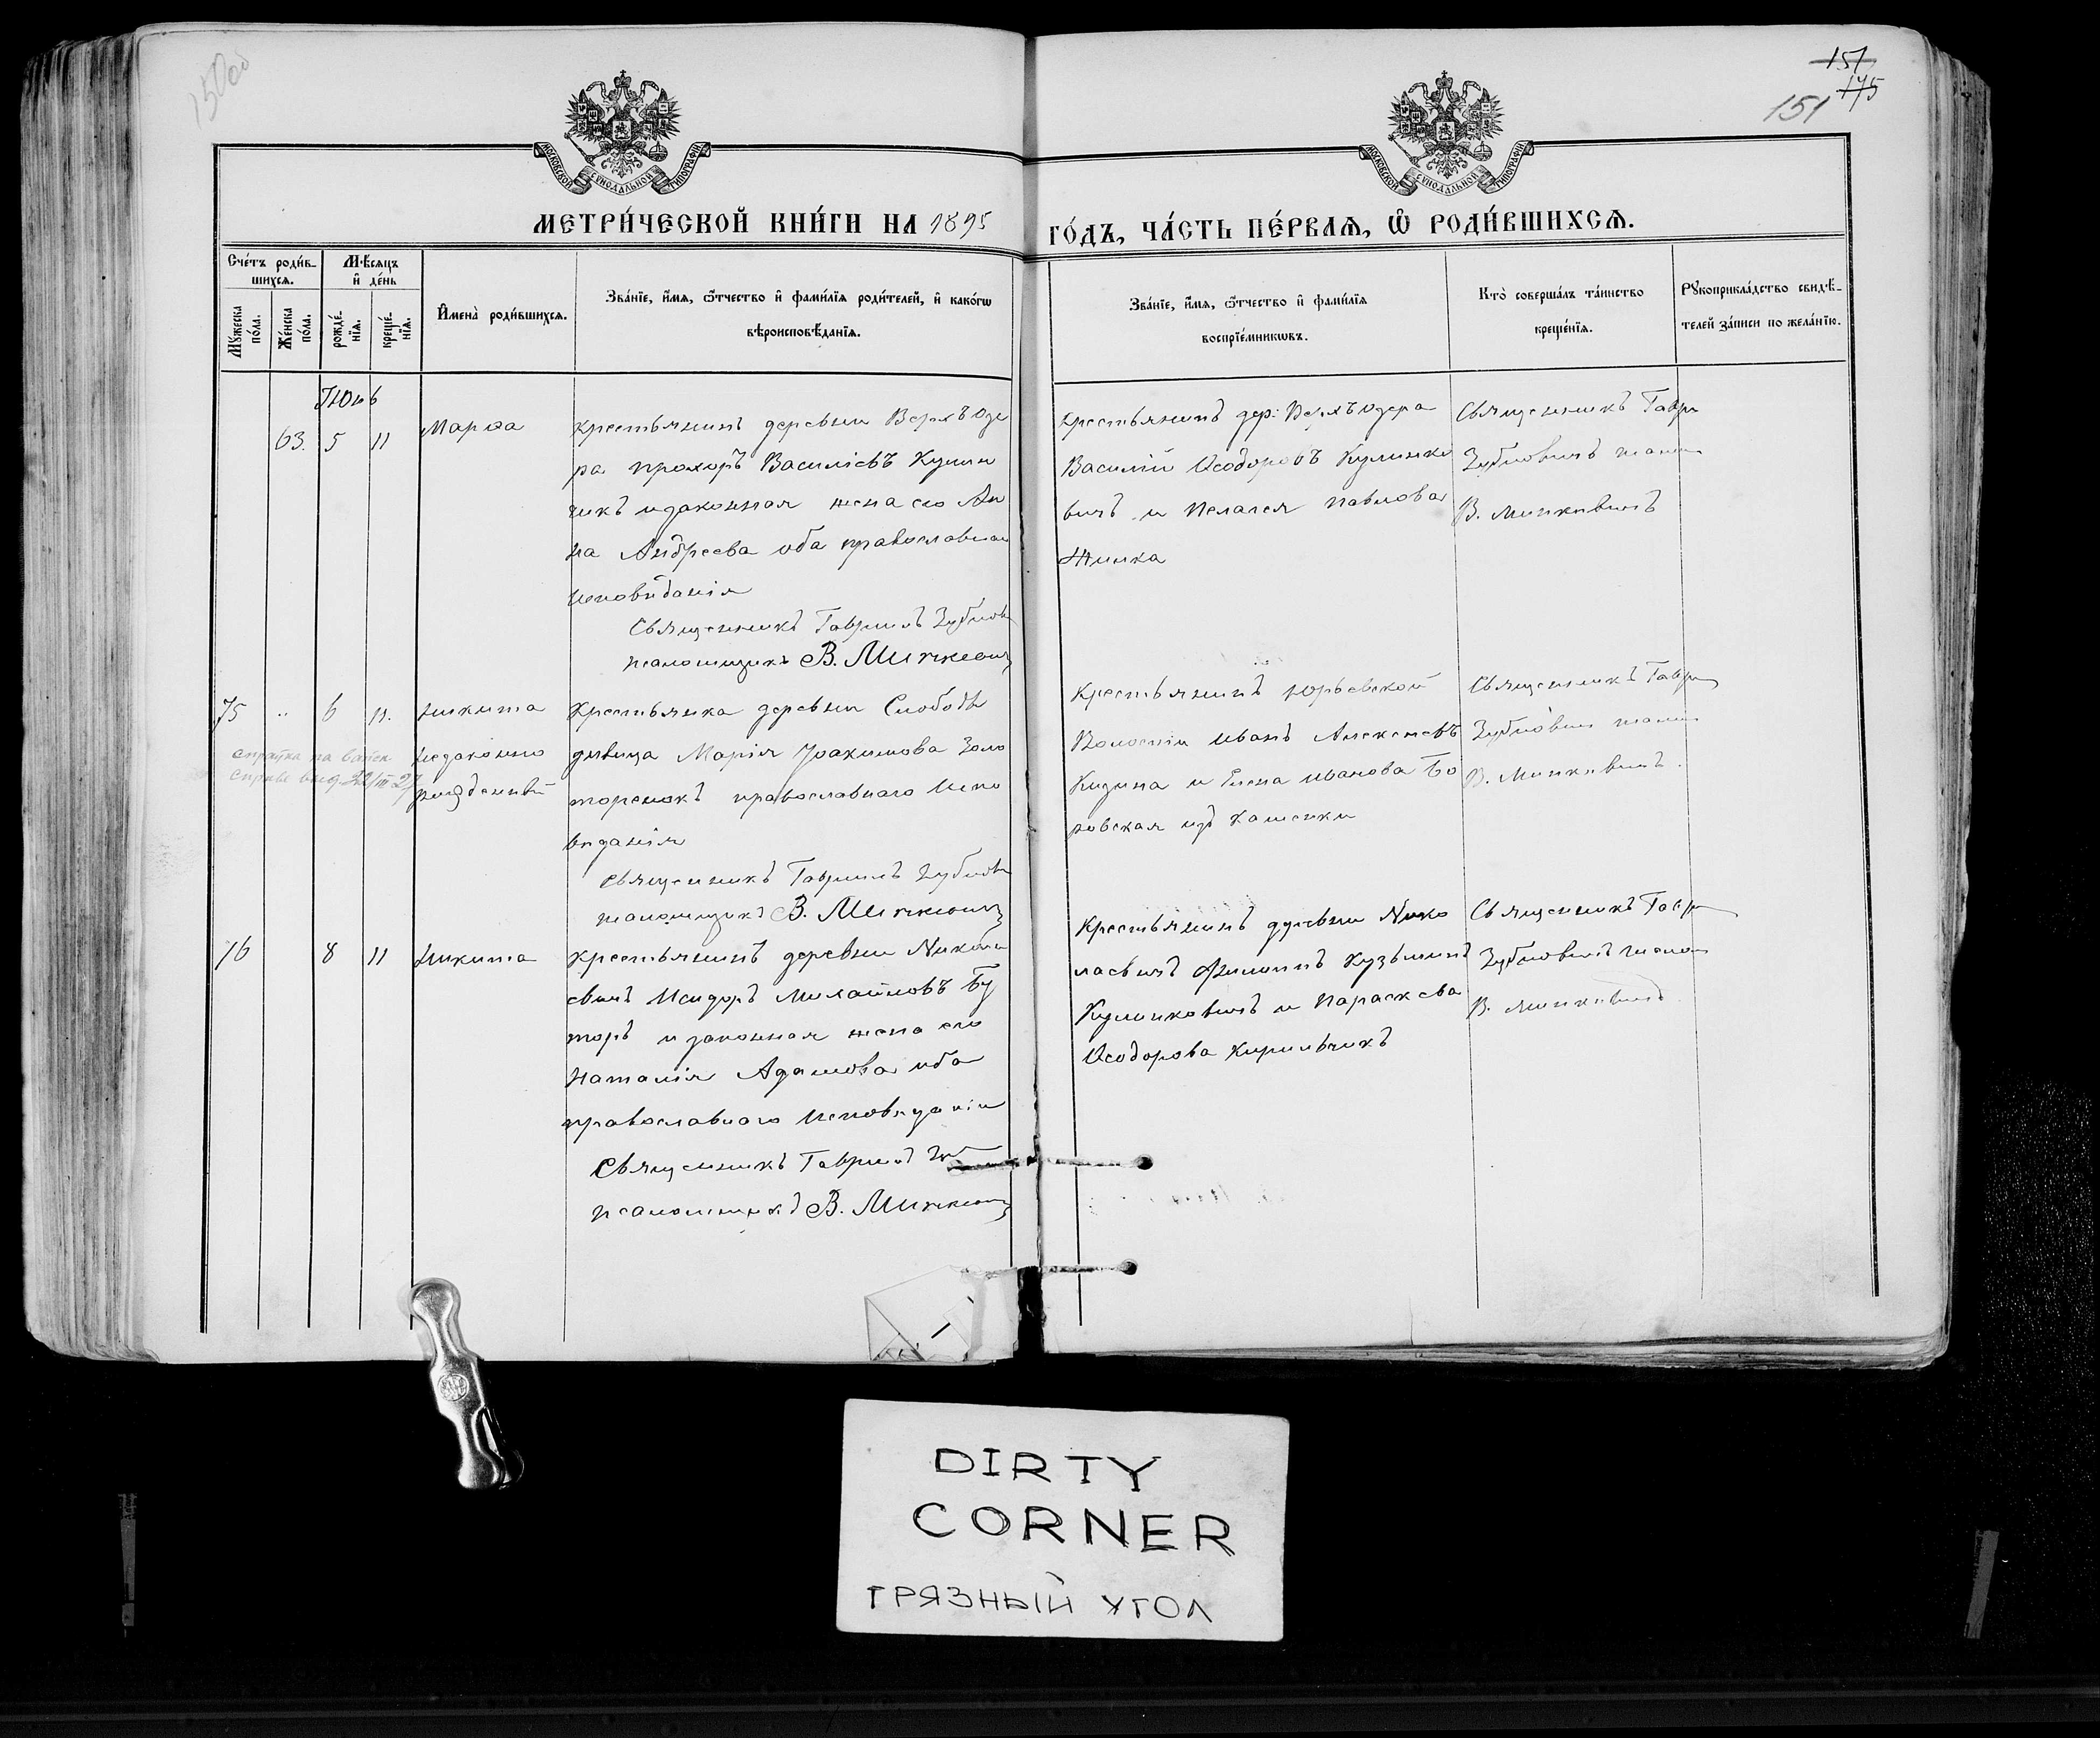 151
175
151
МОСКОВСКОЙ СУНОДАЛЬНОЙ ТИПОГРАФІИ
МОСКОВСКОЙ СУНОДАЛЬНОЙ ТИПОГРАФІИ
МЕТРИ́ЧЕСКОЙ КНИ́ГИ НА 1895 ГО́ДЪ, ЧА́СТЬ ПЕ́РВАѦ, Ѡ҆ РОДИ́ВШИХСѦ.
Сче́тъ роди́в-
шихсѧ.
Мꙋ́жеска по́ла.
Же́нска по́ла.
Мѣ́сѧцъ
и҆ де́нь
рожде́-
нїѧ.
креще́-
нїѧ.
И҆мена̀ роди́вшихсѧ.
Зва́нїе, и҆́мѧ, ѻ҆́тчество и҆ фами́лїѧ роди́телей, и҆ како́гѡ
вѣроисповѣ́данїѧ.
Зва́нїе, и҆́мѧ, ѻ҆́тчество и҆ фами́лїѧ
воспрїе́мникѡвъ.
Кто̀ соверша́лъ та́инство
креще́нїѧ.
Рꙋкоприкла́дство свидѣ́-
телей за́писи по жела́нїю.
Іюнь
63. 5 11 Марѳа
Крестьянинъ деревни Верхъ озе
ра Прохоръ Василіевъ
чикъ и законная жена его Ан
на Андреева оба православнаго
исповѣданія
Священникъ Гавриилъ
псаломщикъ В. Мицкевичъ
Крестьянинъ дер: Верхъ озера
Василій Ѳеодоровъ Кулинко
вичъ и Пелагея Павлова
Жилка
Священникъ Гаври
В. Мицкевичъ
75 " 6 11. Никита
незаконно
рожденный
справка
Крестьянка деревни Слободы
дѣвица Марія Іоакимова Золо
торенокъ православнаго испо
вѣданія
Священникъ Гавриилъ
псаломщикъ В. Мицкевичъ
Крестьянинъ Юрьевской
Волости Иванъ Алексѣевъ
Кизина и Елена Иванова Бо
ровская изъ
Священникъ Гаври
В. Мицкевичъ.
76 8 11 Никита
Крестьянинъ деревни Никола
евичъ Исидоръ Михайловъ Бу
торъ и законная жена его
Наталія Адамова оба
православнаго исповѣданія
Священникъ Гавриилъ
псаломщикъ В. Мицкевичъ
Крестьянинъ деревни Нико
лаевичъ Филиппъ Кузьминъ
Кулинковичъ и Параскева
Ѳеодорова Кирильчикъ
Священникъ Гаври
В. Мицкевичъ
DIRTY
CORNER
ГРЯЗНЫЙ УГОЛ